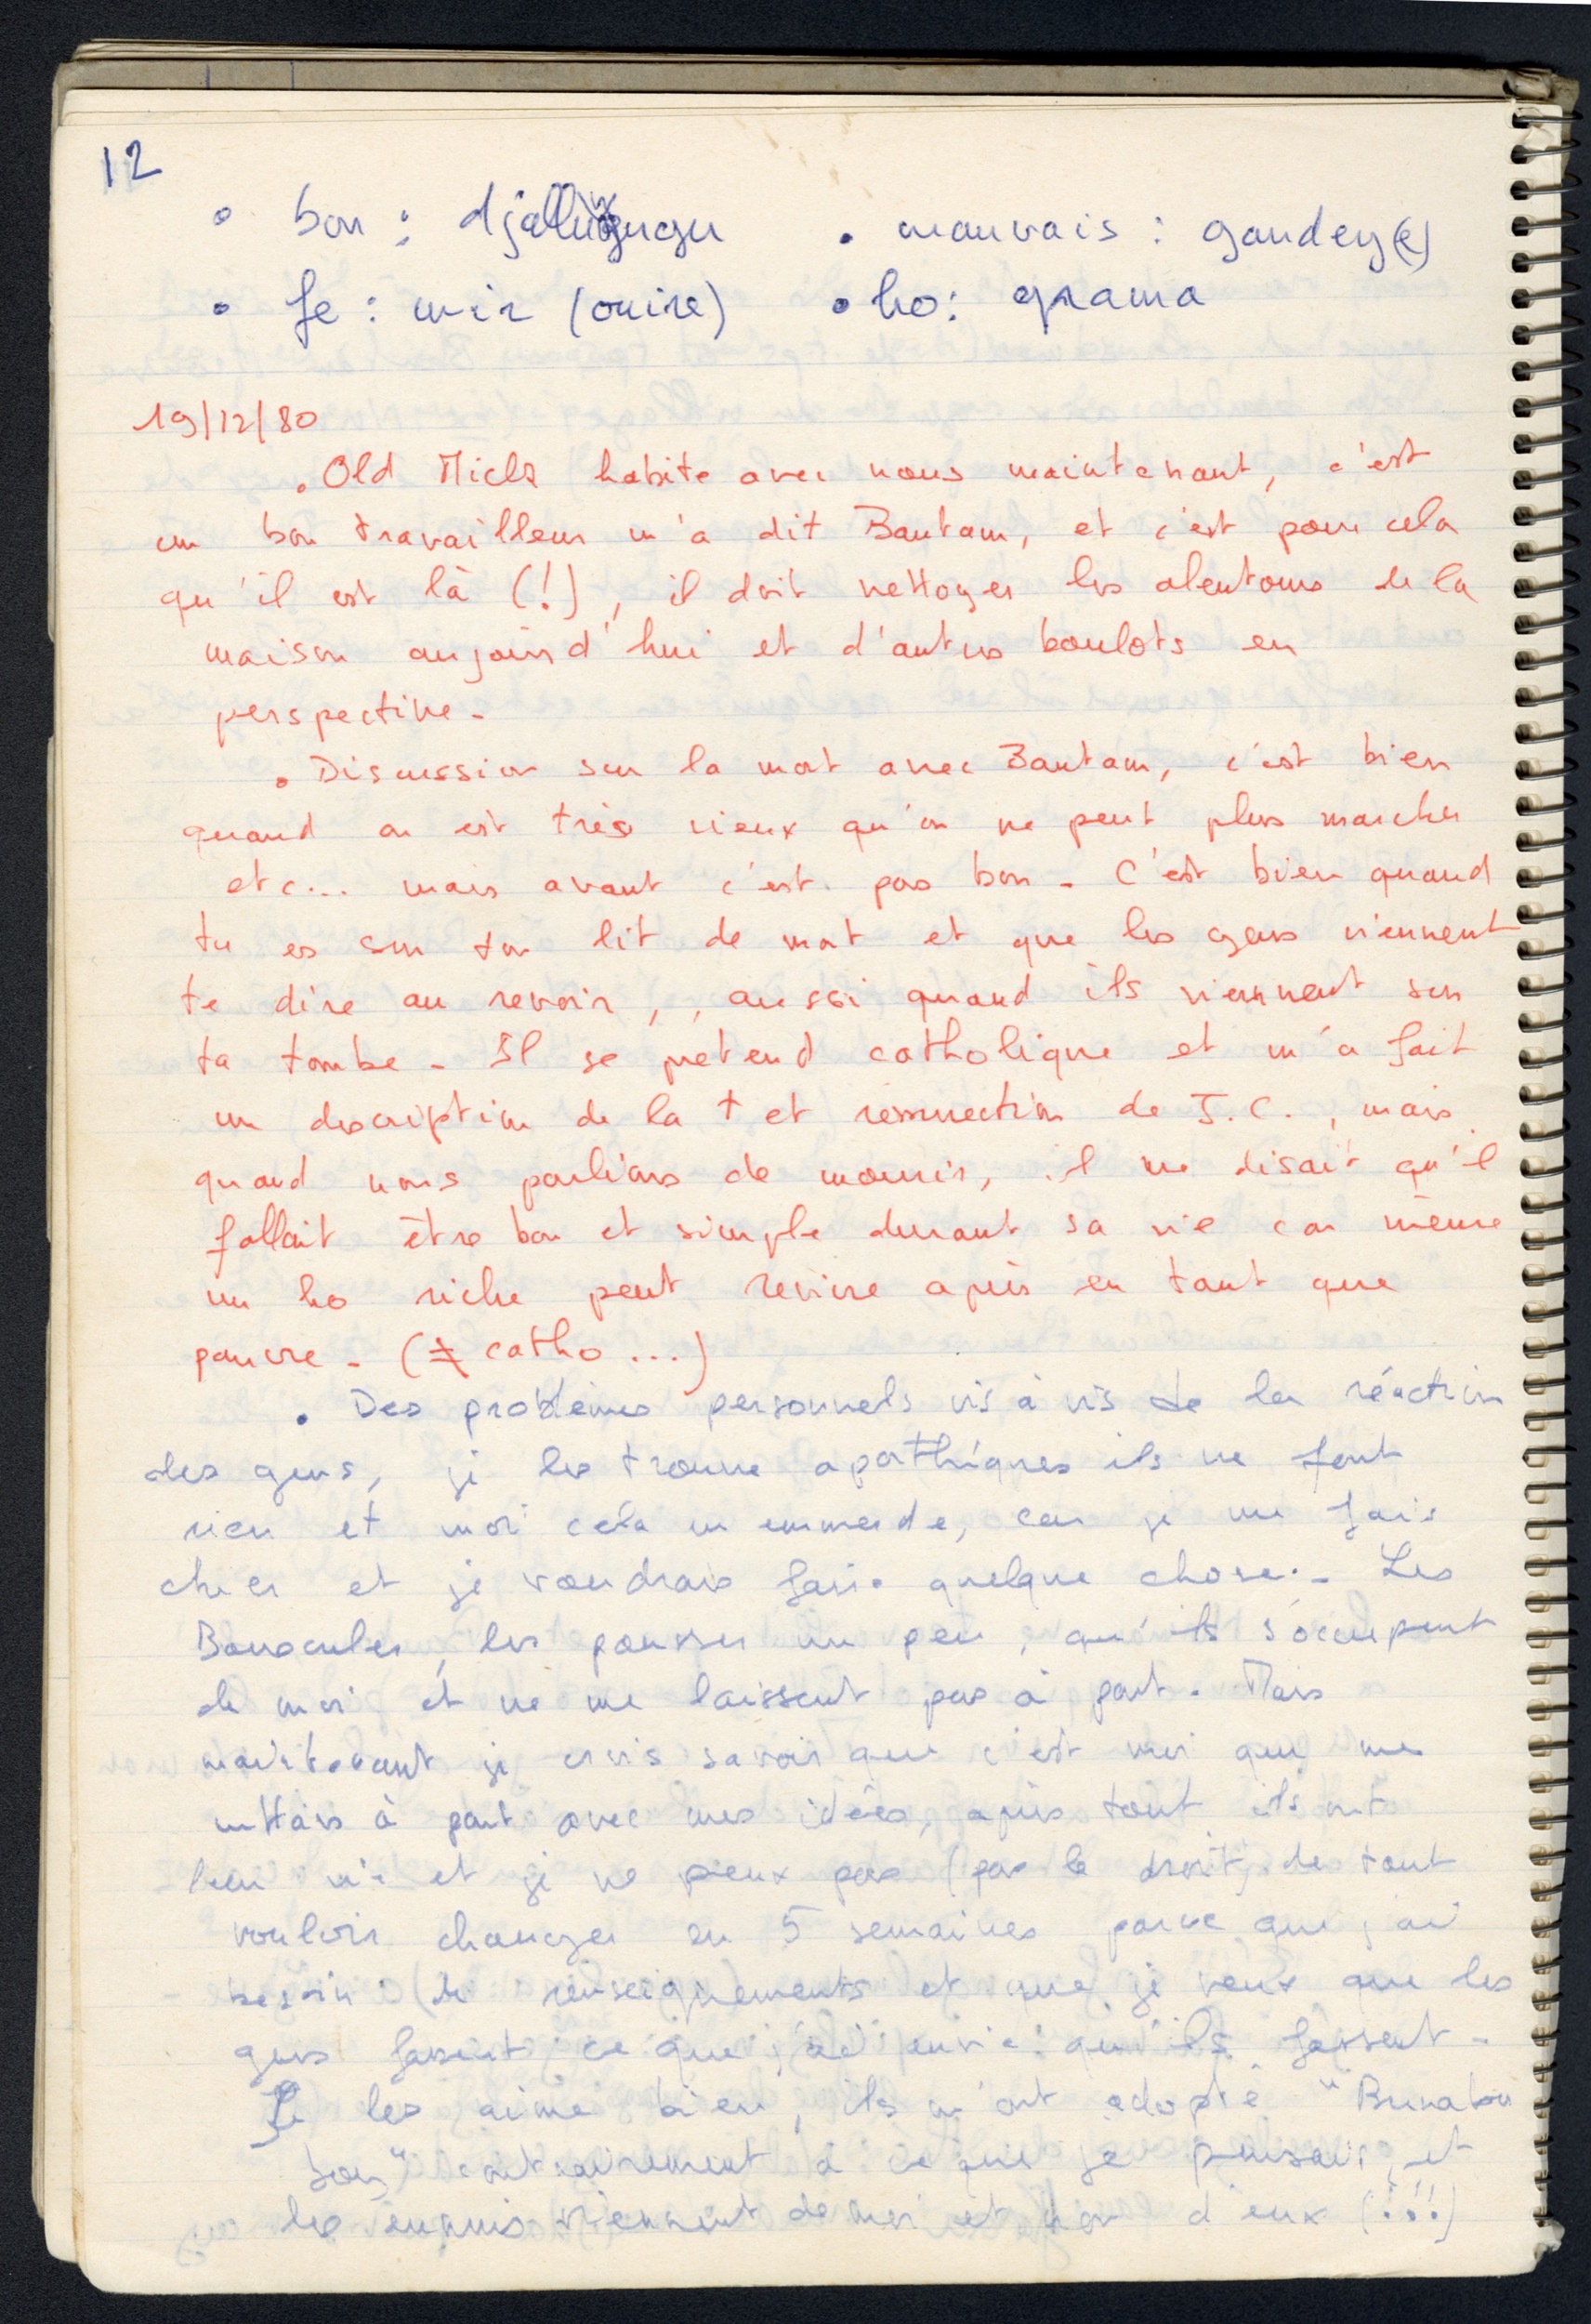 12
• bon : djallugugu • mauvais : gandey(e)
• fe : wir (ouire) • ho : grama
19/12/80
• Old Mick habite avec nous maintenant, c'est
un bon travailleur m'a dit Bantam, et c'est pour cela
qu'il est là (!), il doit nettoyer les alentours de la
maison aujourd'hui et d'autres boulots en
perspective -
• Discussion sur la mort avec Bantam, c'est bien
quand on est très vieux qu'on ne peut plus marcher
etc... mais avant c'est pas bon - C'est bien quand
tu es sur ton lit de mort et que les gens viennent
te dire au revoir, , aussi quand ils viennent sur
ta tombe - Il se prétend catholique et m'a fait
un description de la † et résurrection de J.C., mais
quand nous parlions de mourir, il me disait qu'il
fallait être bon et simple durant sa vie car même
un ho riche peut revivre après en tant que
pauvre - (≠ catho ...)
• Des problèmes personnels vis à vis de la réaction
des gens, je les trouve apathiques ils ne font
rien et moi cela m'emmerde, car je me fais
chier et je voudrais faire quelque chose. - Les
Bousculer, les pousser un peu, qu'ils s'occupent
de moi et ne me laissent pas à part. Mais
maintenant je crois savoir que c'est moi que me
mettais à part avec mes idées, après tout ils ont
leur vie et je ne peux pas (pas le droit) de tout
vouloir changer en 5 semaines parce que j'ai
besoin de renseignements et que je veux que les
gens fassent ce que j'ai envie qu'ils fassent -
Je les aime bien, ils m'ont adopté "
contrairement à ce que je pensais, et
les ennuis viennent de moi et non d'eux (!!!)